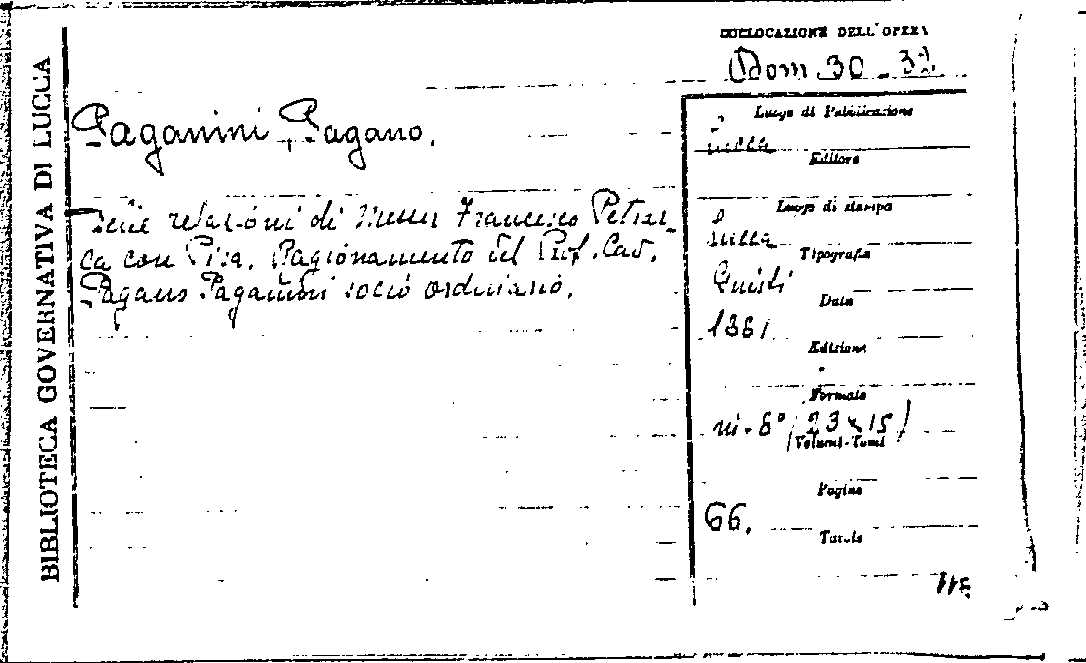 BIBLIOTECA GOVERNATIVA DI LUCCA
COLLOCAZIONE DELL'OPERA
Paganini, Pagano.
Delle relazioni di Messer Francesco Petrar-
ca con Pisa. Ragionamento del Prof. Cav.
Pagano Paganini socio ordinario.
Luogo di Pubblicazione
Lucca
Editore
Luogo di stampa
Lucca
Tipografia
Giusti
Data
1881
Edizione
Formato
in-8° (23x15)
Volumi-Tomi
Pagine
66.
Tavole